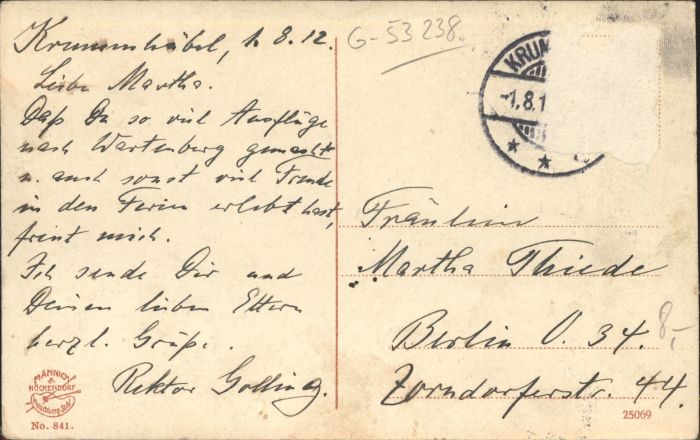 Krummhübel, 1. 8. 12.
Liebe Martha.
Daß Du so viel Ausflüge
nach Wartenberg gemacht
u. auch sonst viel Freude
in den Ferien erlebt hast,
freut mich.
Ich sende Dir und
Deinen lieben Eltern
herzl. Grüße.
Rektor Golling.
G-53 238.
KRUM
-1.8.1
Fräulein
Martha Thiede
Berlin O. 34.
Zorndorferstr. 44.
8,-
MÄNNICH
&
HÖCKENDORF
No. 841.
25069